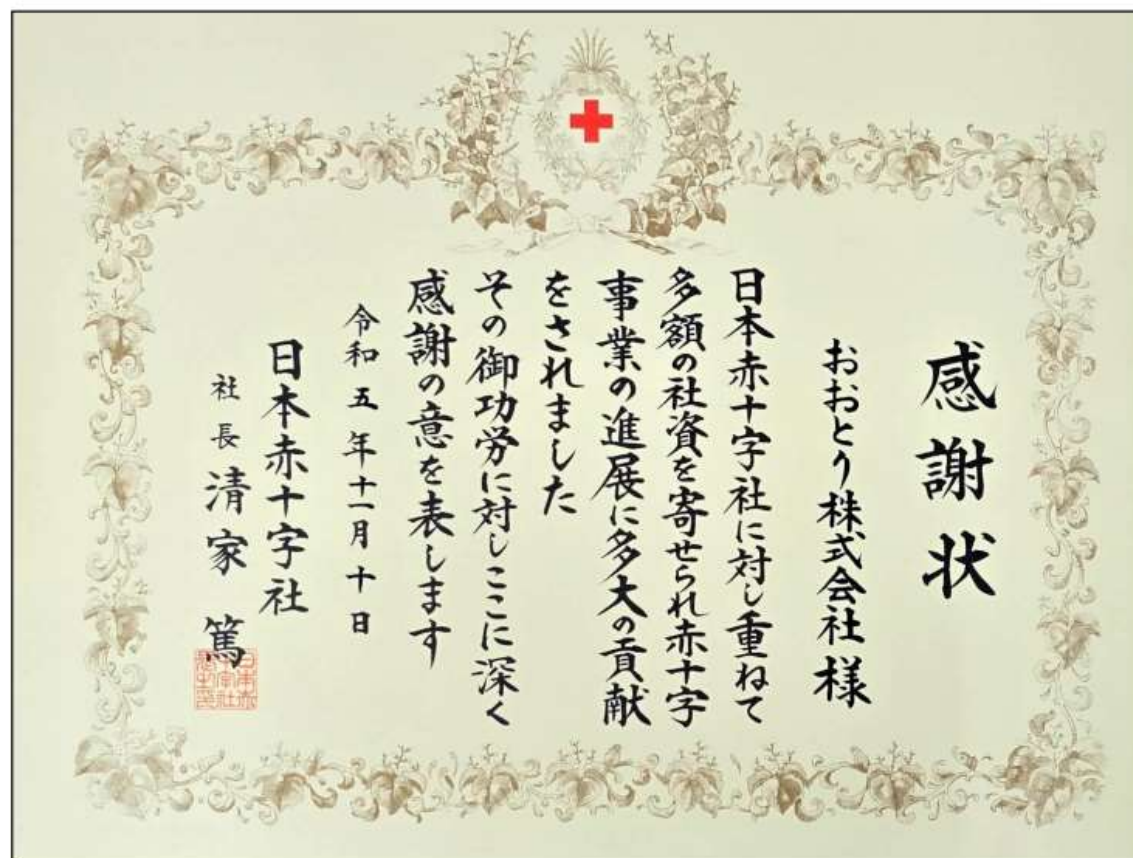 感謝状
おおとり株式会社様
日本赤十字社に対し重ねて
多額の社資を寄せられ赤十字
事業の進展に多大の貢献
をされました
その御功労に対しここに深く
感謝の意を表します
令和五年十一月十日
日本赤十字社
社長 清家 篤